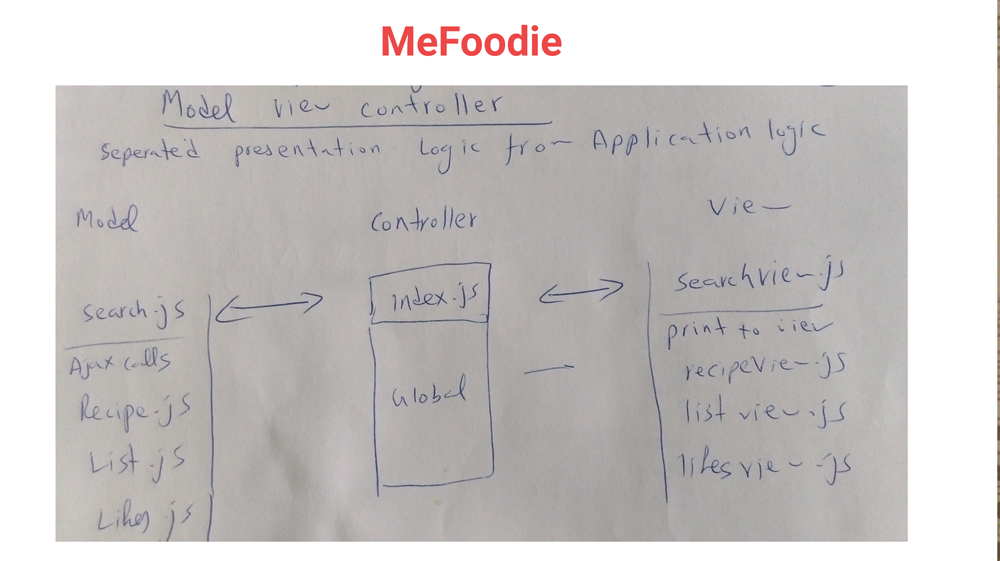 MeFoodie
Model view controller
seperated presentation Logic from Application logic
Model
search.js
Ajax calls
Recipe.js
List.js
Likes.js
Controller
index.js
Global
View
searchview.js
print to view
recipeView.js
list view.js
likesview.js